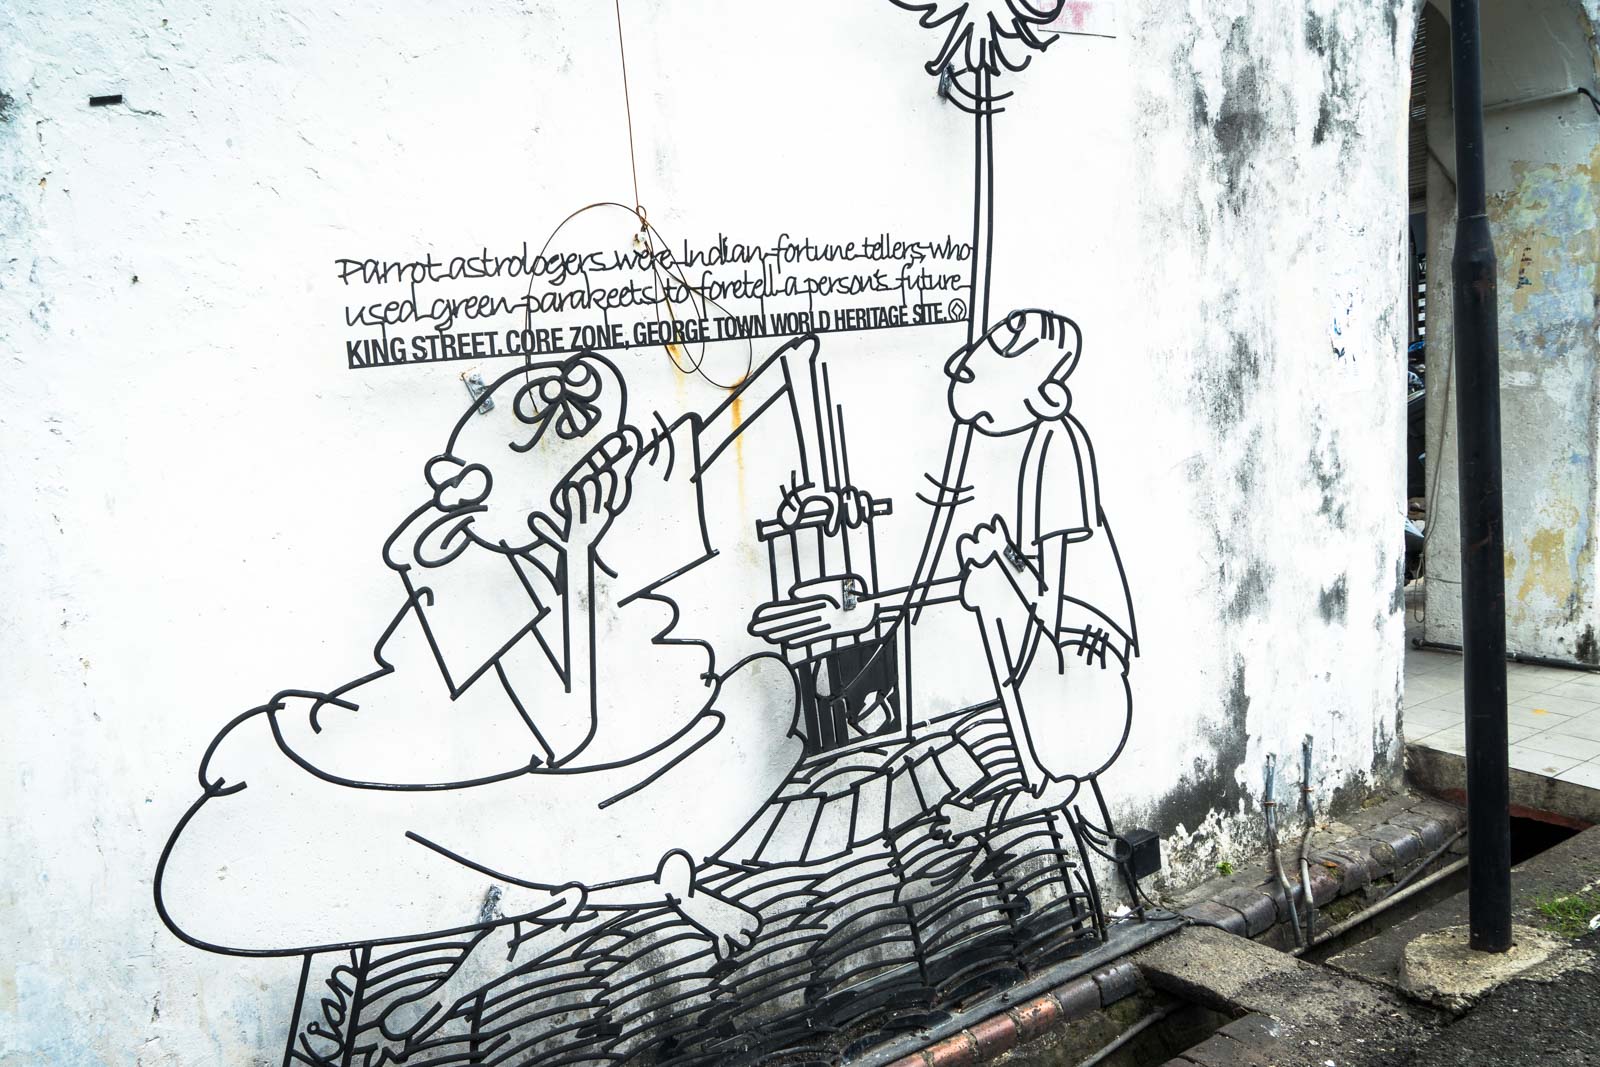 Parrot astrologers were Indian fortune tellers who
used green parakeets to foretell a person's future
KING STREET. CORE ZONE, GEORGE TOWN WORLD HERITAGE SITE.
Kian